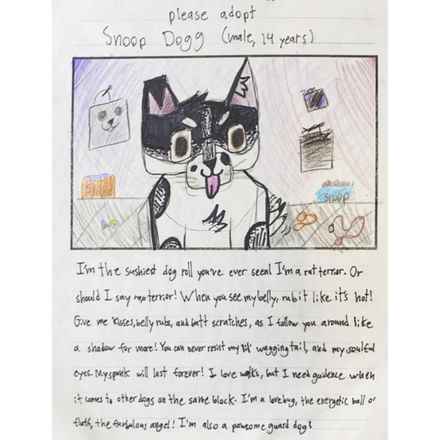 please adopt
Snoop Dogg (male, 14 years)
snoop
I'm the sushiest dog roll you've ever seen! I'm a rat terror. Or
should I say rap terror! When you see my belly, rub it like it's hot!
Give me kisses, belly rubs, and butt scratches, as I follow you around like
a shadow for more! You can never resist my lil' wagging tail, and my soulful
eyes. My spunk will last forever! I love walks, but I need guidence when
it comes to other dogs on the same block. I'm a lovebug, the energetic ball of
fluff, the furbulous angel! I'm also a pawsome guard dog!